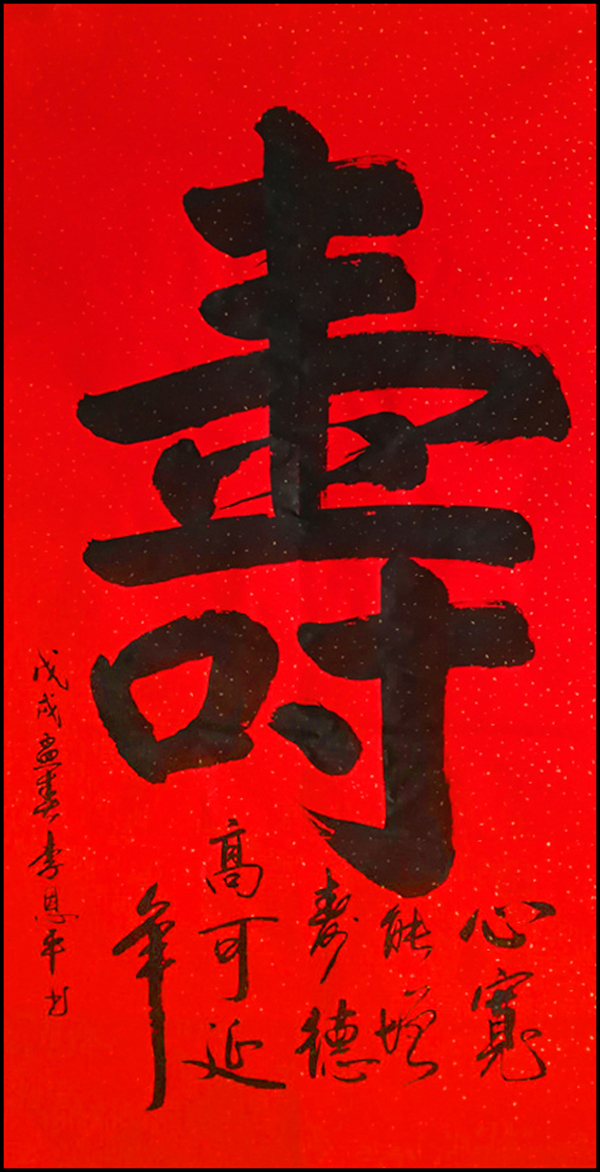 壽
心寬
能增
壽德
高可延
年
戊戌孟春李恩平书